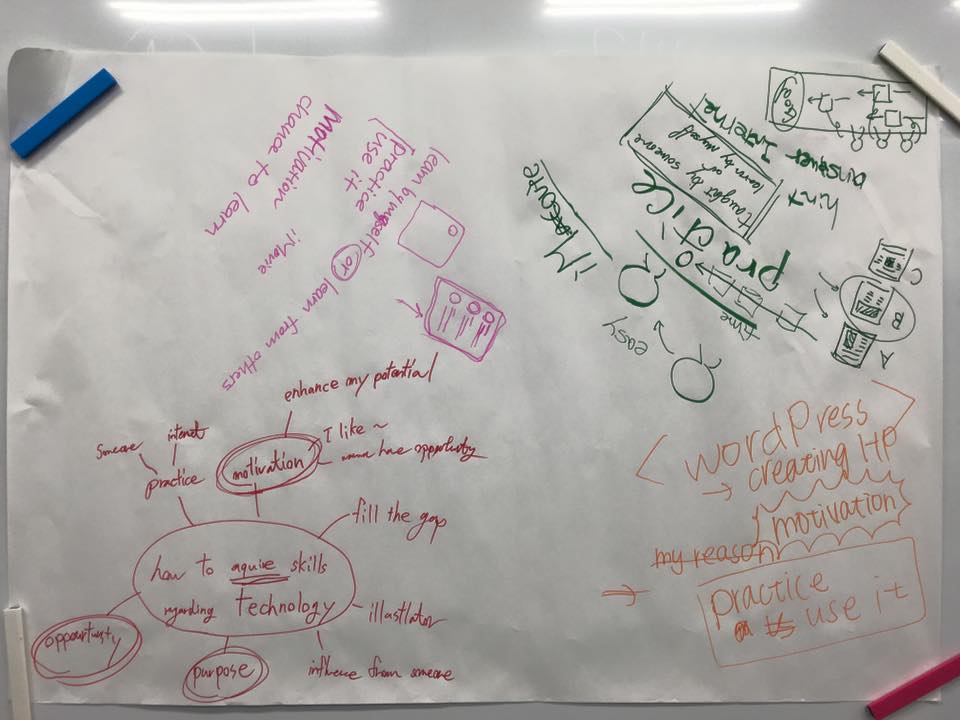 chance to learn
motivation
[practice
use it
learn by myself or learn from others
iMovie
GOAL
Internet
answer
hint
taught by someone
or
learn by myself
practice
time
easy
A
B
C
enhance my potential
I like ~
wanna have opportunity
motivation
Someone
internet
practice
fill the gap
how to aquire skills
regarding technology
illastlator
influence from someone
purpose
opportunity
< wordPress >
→ creating HP
motivation
my reason
→
practice
use it